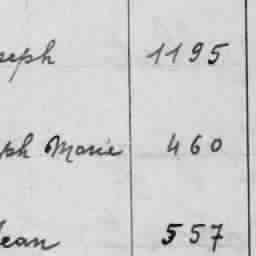 seph 1195
ph Marie 460
Jean 557